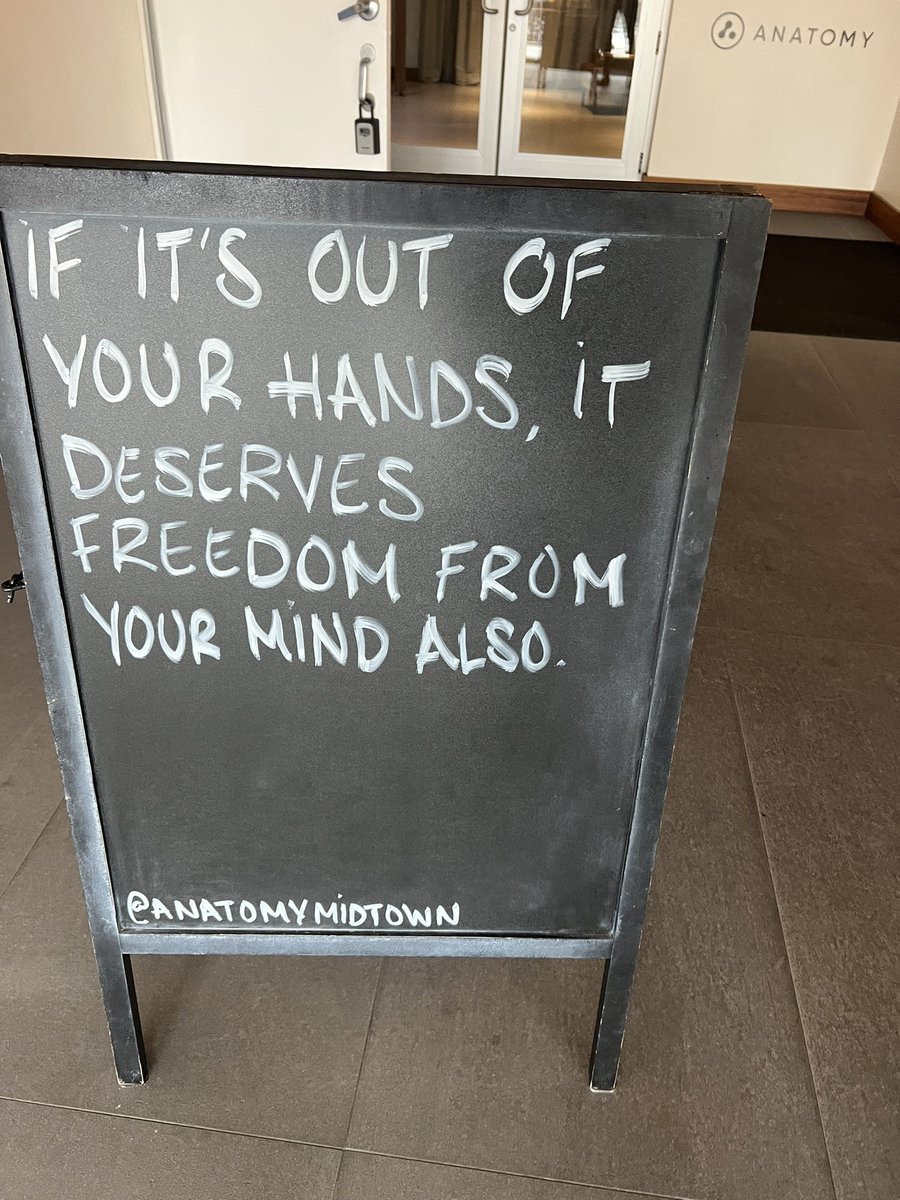 ANATOMY
IF IT'S OUT OF
YOUR HANDS, IT
DESERVES
FREEDOM FROM
YOUR MIND ALSO.
@ANATOMYMIDTOWN